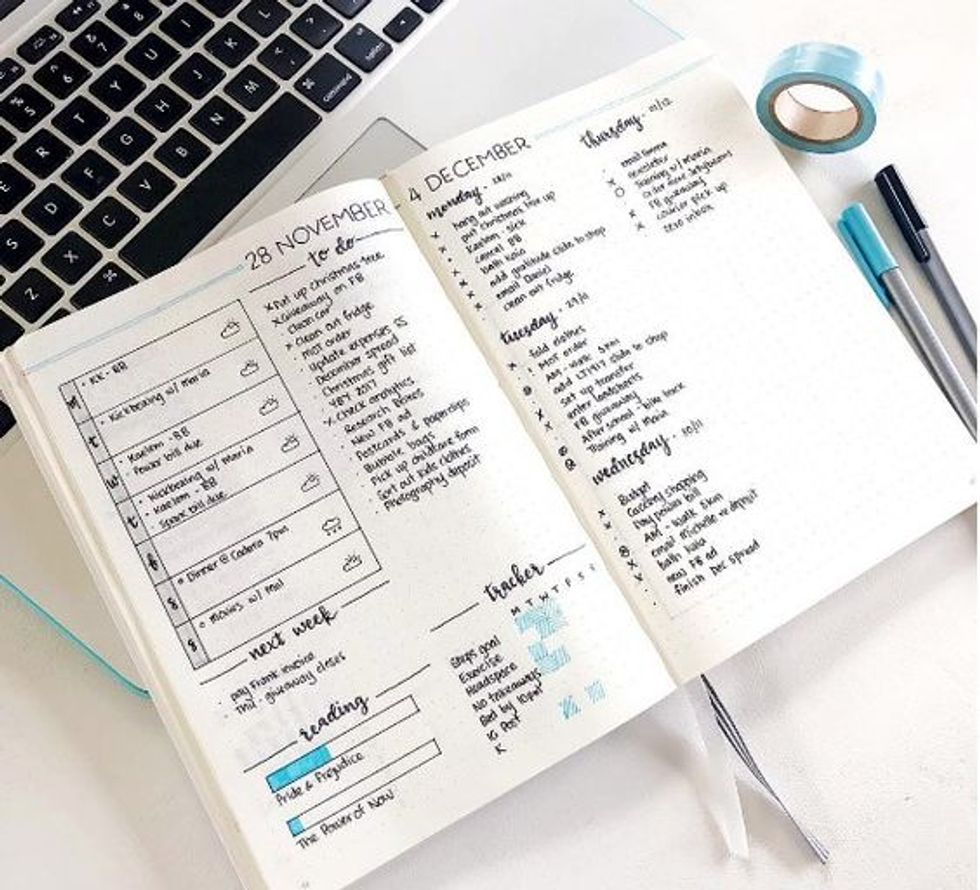 28 NOVEMBER - 4 DECEMBER
to do
x Put up christmas tree
x Giveaway on FB
· Clean car
x Clean out fridge
· MGT order
· Update expenses SS
· December spread
· Christmas gift list
· YBY 2017
x Check analytics
· Research boxes
· New FB ad
· Postcards & paperclips
· Bubble bags
· Pick up childcare form
· Sort out kids clothes
· Photography deposit
m
· KK - BB
t
· Kickboxing w/ maria
w
· Kaelem - BB
· Power bill due
t
· Kickboxing w/ maria
· Kaelem - BB
· Spark bill due
f
s
o Dinner @ Cadera 7pm
s
o movies w/ mal
next week
· pay Frank invoice
· Thu - giveaway closes
reading
Pride & Prejudice
The Power of Now
tracker
M T W T F S S
Steps goal
Exercise
Headspace
No takeaways
Bed by 10pm
IG Post
K
monday - 28/11
hang out washing
put christmas tree up
Kaelem - sick
cancel BB
bath Kaia
add gratitude slide to shop
email Daniel
clean out fridge
tuesday - 29/11
fold clothes
MGT order
AM - walk 5km
slide to shop
set up transfer
enter
FB giveaway
After school - bike track
Training w/ Maria
wednesday - 30/11
Budget
Grocery shopping
Pay power bill
AM - walk 5km
email michelle re deposit
bath Kaia
new FB ad
finish Dec spread
thursday - 01/12
email
newsletter
Training w/ maria
order
FB giveaway
courier pick up
zero inbox
command
option